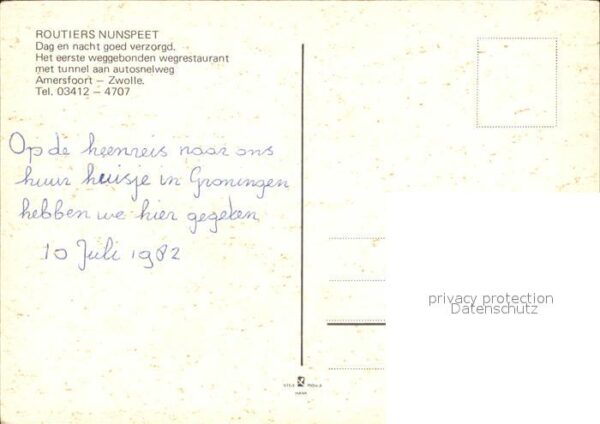 ROUTIERS NUNSPEET
Dag en nacht goed verzorgd.
Het eerste weggebonden wegrestaurant
met tunnel aan autosnelweg
Amersfoort – Zwolle.
Tel. 03412 – 4707
Op de heenreis naar ons
huur huisje in Groningen
hebben we hier gegeten
10 Juli 1982
privacy protection
Datenschutz